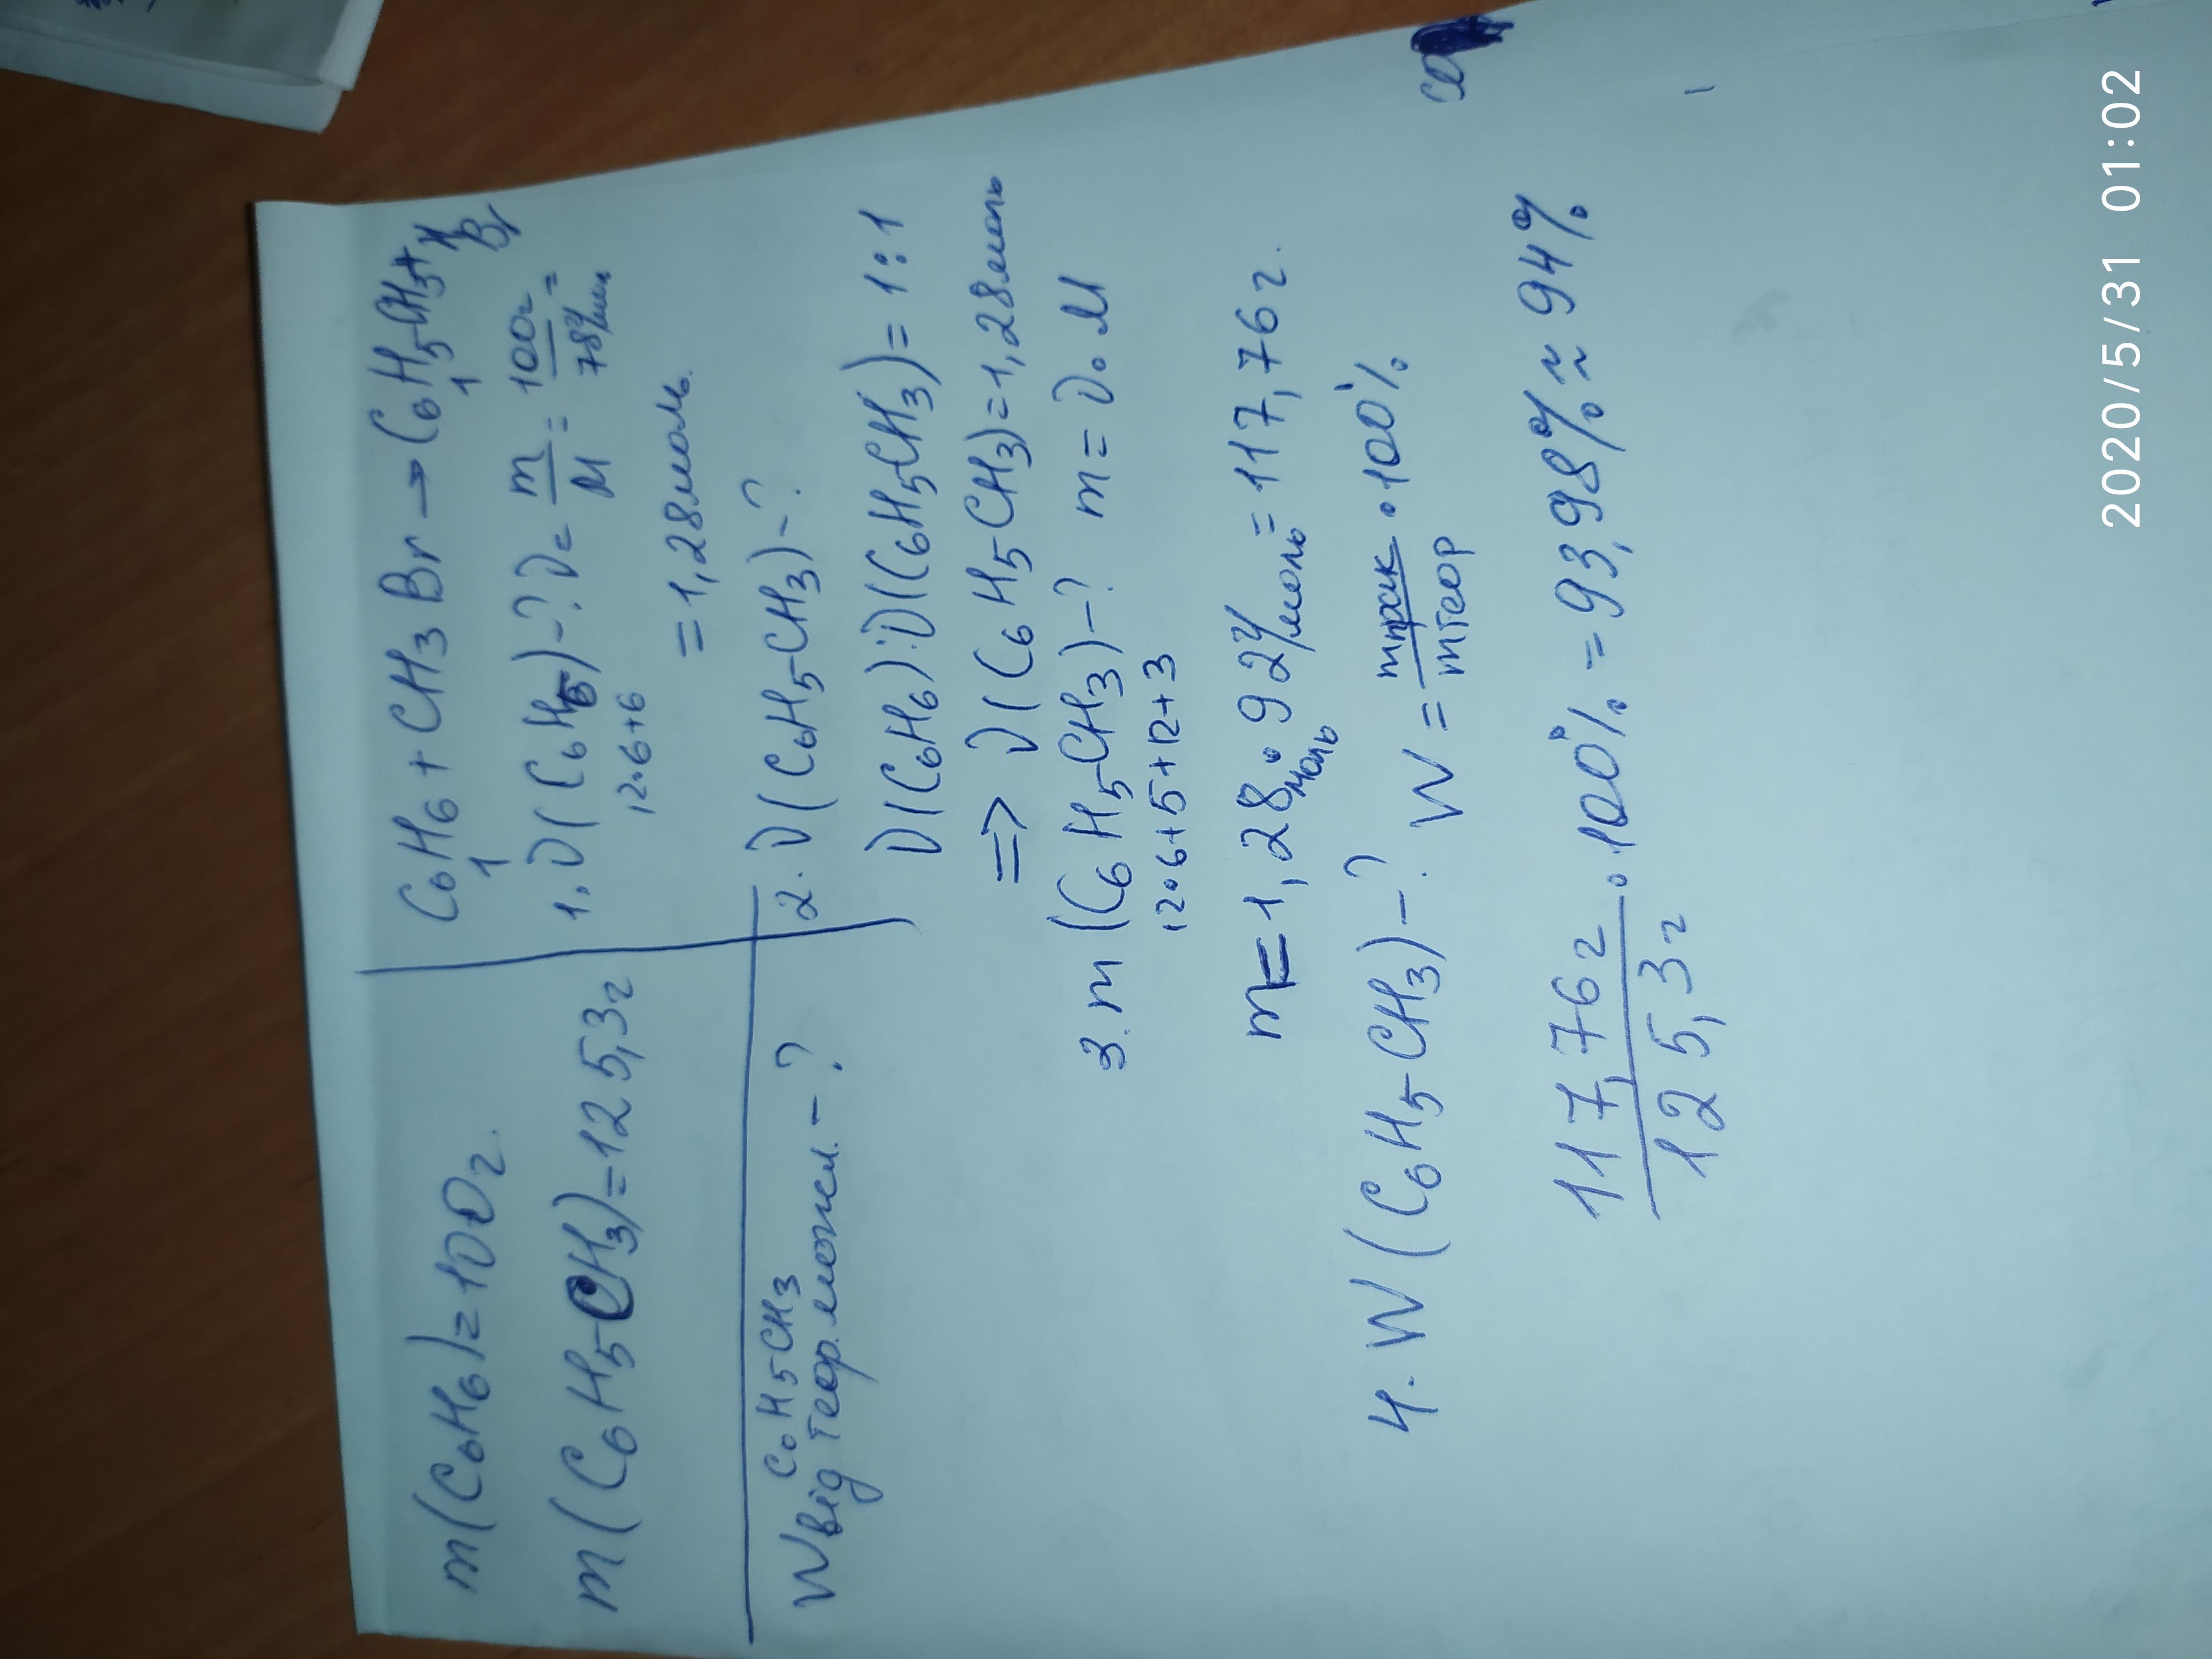 m(C6H6)=100г.
m(C6H5-CH3)=125,3г
C6H5CH3
Wвід теор.можл.-?
C6H6+CH3Br→C6H5-CH3+HBr
1 1
1. ν(C6H6)-? ν=m/M=100г/78г/моль=
12•6+6
=1,28моль.
2. ν(C6H5-CH3)-?
ν(C6H6):ν(C6H5CH3)=1:1
=> ν(C6H5-CH3)=1,28моль
3. m(C6H5-CH3)-? m=ν•M
12•6+5+12+3
m=1,28моль•92г/моль=117,76г.
4. W(C6H5-CH3)-? W=mпрак/mтеор•100%
117,76г/125,3г•100%=93,98%≈94%
2020/5/31 01:02